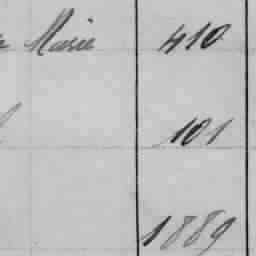 Marie 410
101
1889